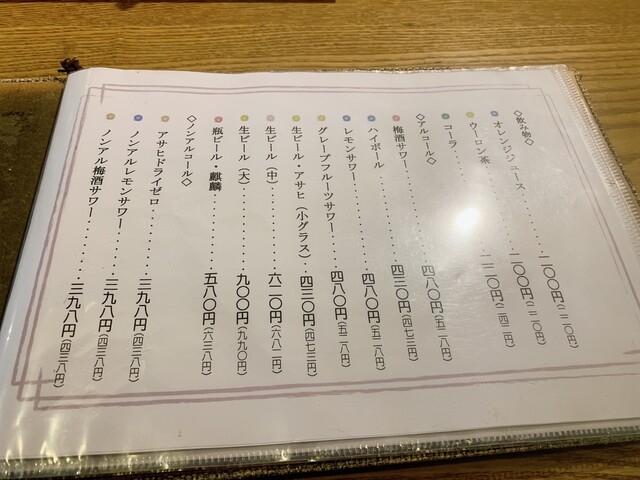 ◇飲み物◇
オレンジジュース・・・・・・・・二〇〇円(二二〇円)
ウーロン茶・・・・・・・・・・・二〇〇円(二二〇円)
コーラ・・・・・・・・・・・・・二二〇円(二四二円)
◇アルコール◇
梅酒サワー・・・・・・・・・・・四八〇円(五二八円)
ハイボール・・・・・・・・・・・四三〇円(四七三円)
レモンサワー・・・・・・・・・・四八〇円(五二八円)
グレープフルーツサワー・・・・・四八〇円(五二八円)
生ビール・アサヒ(小グラス)・・四三〇円(四七三円)
生ビール(中)・・・・・・・・・六二〇円(六八二円)
生ビール(大)・・・・・・・・・九〇〇円(九九〇円)
瓶ビール・麒麟・・・・・・・・・五八〇円(六三八円)
◇ノンアルコール◇
アサヒドライゼロ・・・・・・・・三九八円(四三八円)
ノンアルレモンサワー・・・・・・三九八円(四三八円)
ノンアル梅酒サワー・・・・・・・三九八円(四三八円)